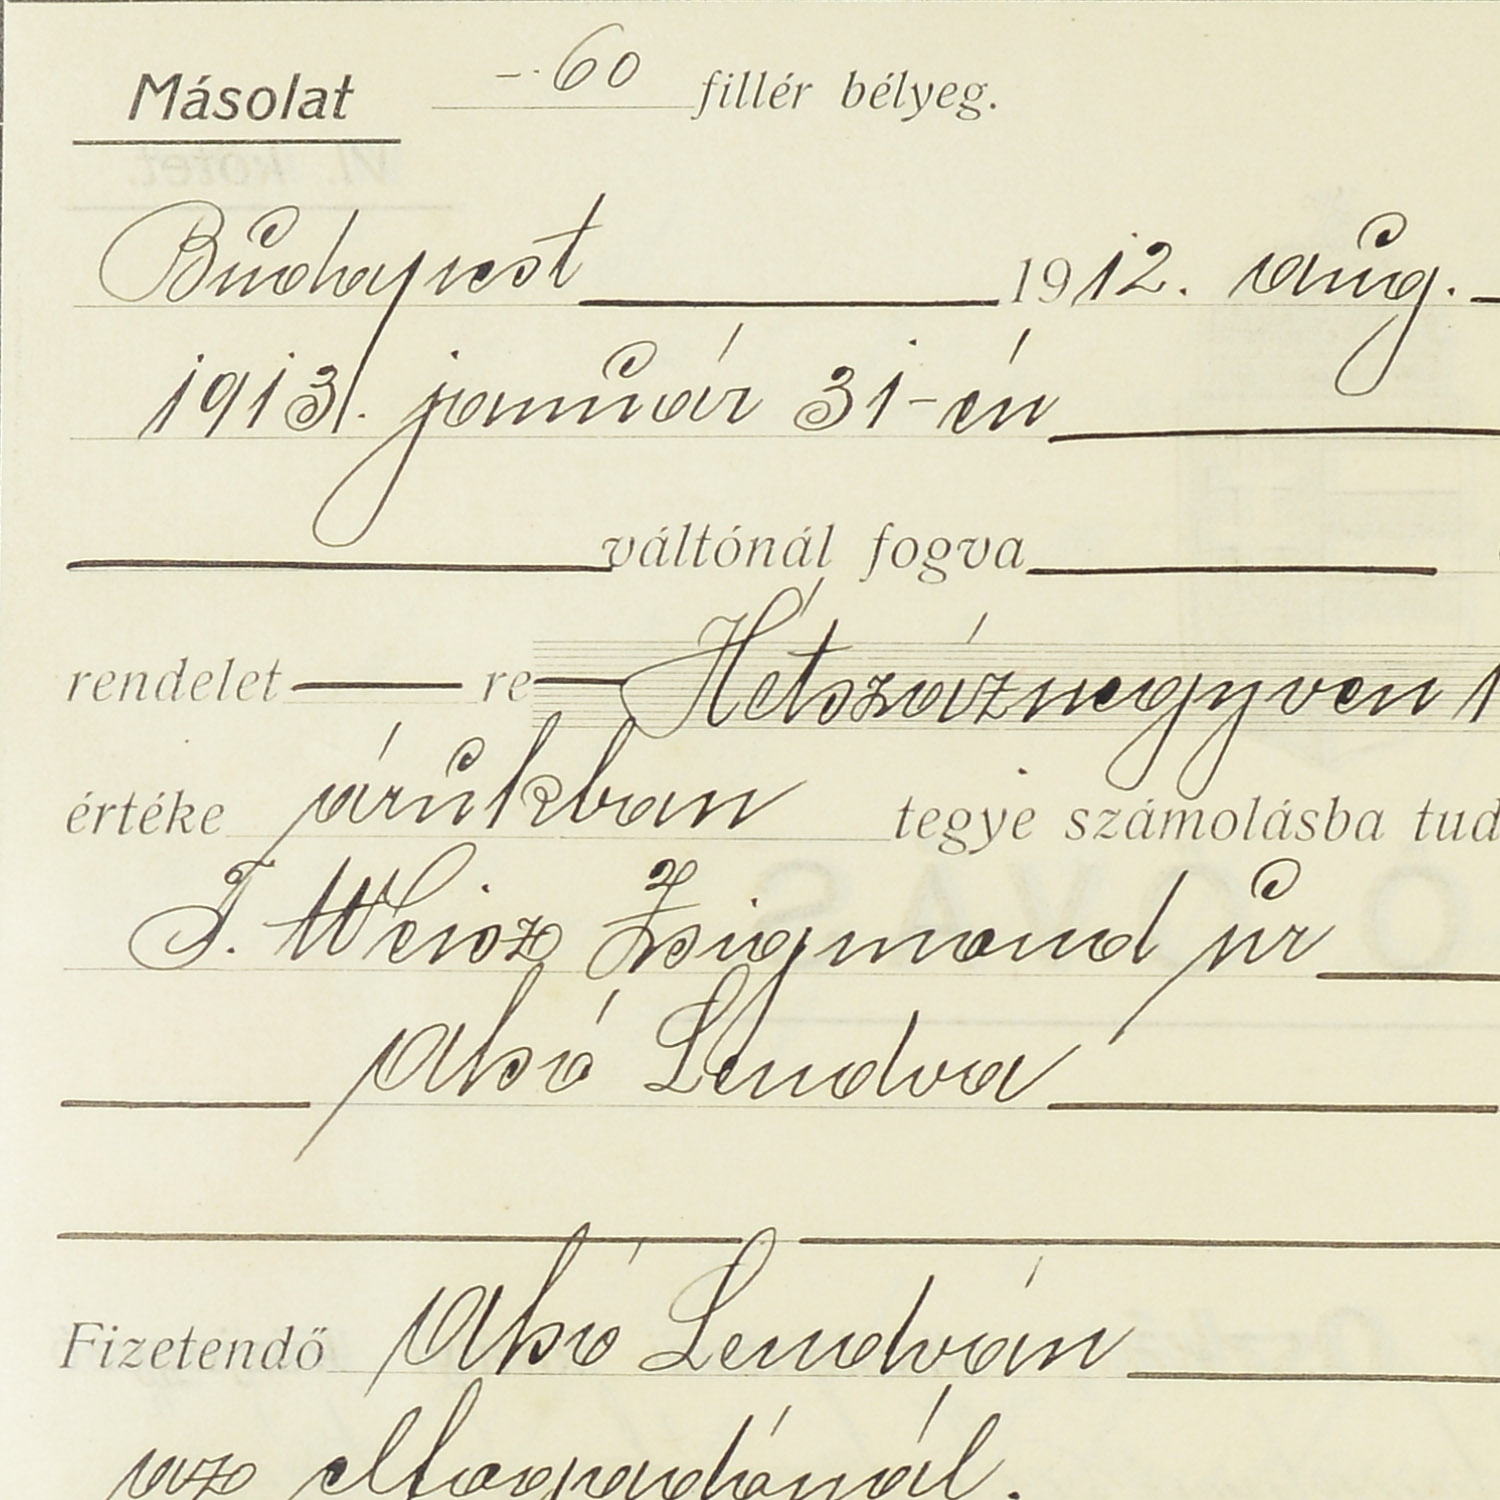 Másolat -.60 fillér bélyeg.
Budapest 1912. aug.
1913. január 31-én
váltónál fogva
rendelet re Hétszáznegyven
értéke árukban tegye számolásba tud
T. Weisz Zsigmond úr
Alsó Lendva
Fizetendő Alsó Lendván
az elfogadónál.